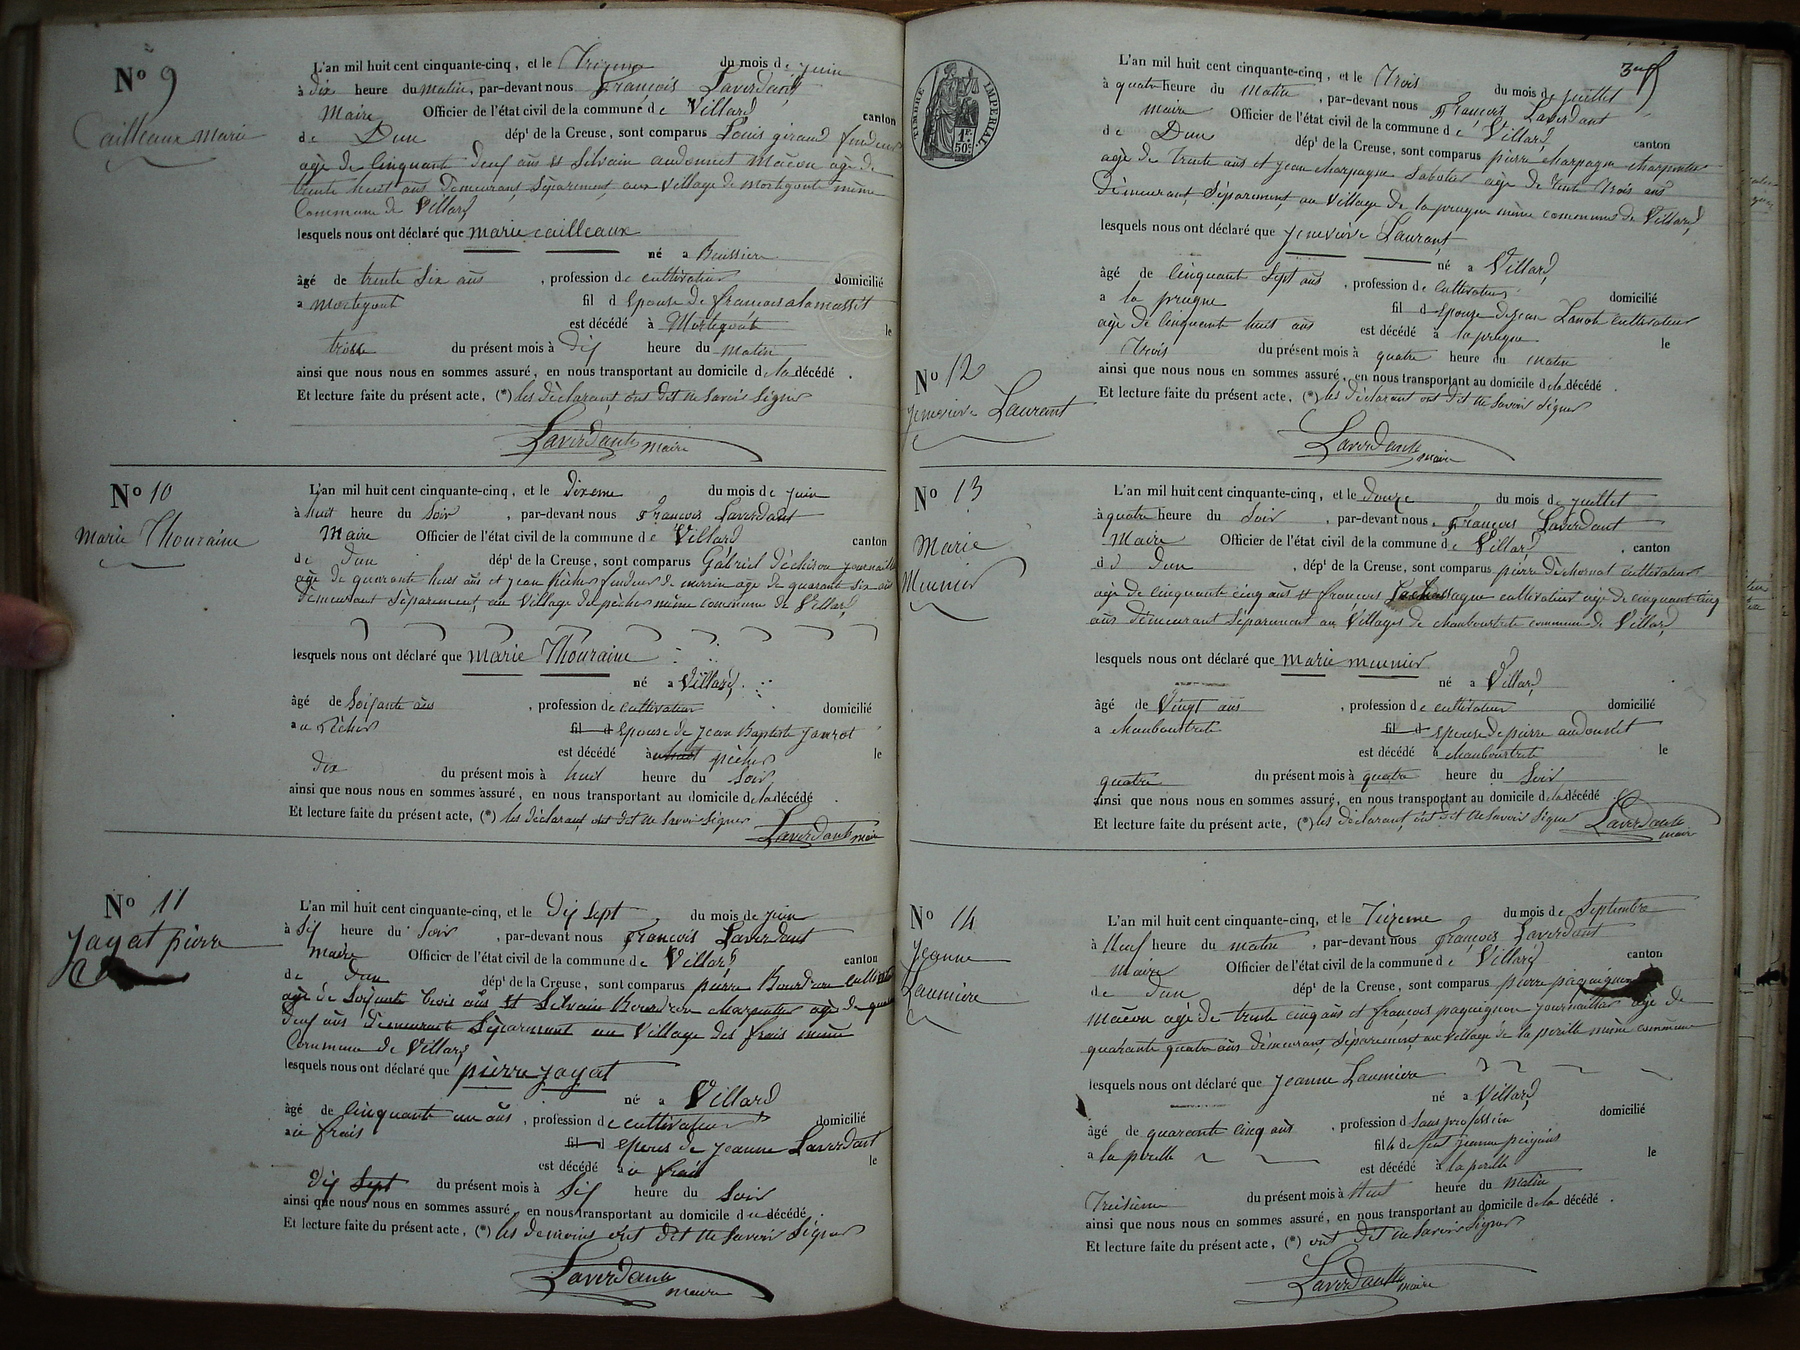 N° 9
Cailleaux marie
L'an mil huit cent cinquante-cinq, et le du mois de juin
à dix heure du matin, par-devant nous François Laverdant
Maire Officier de l'état civil de la commune de Villard canton
de Dun dépt de la Creuse, sont comparus Louis giraud fendeur
age de Cinquant deuf ans et Silvain audonnet Maçon age de
trente huit ans Demeurant Séparement aux Village de Mortegout même
Commune de Villard
lesquels nous ont déclaré que marie cailleaux
né a Bussiere
âgé de trente Six ans , profession de cultivateur domicilié
a mortegout fil d Epouse de francois alamasset
est décédé à Mortegout le
du présent mois à Dix heure du matin
ainsi que nous nous en sommes assuré, en nous transportant au domicile de la décédé .
Et lecture faite du présent acte, (*) les déclarant ont dit ne Savoir Signer
Laverdant maire
N° 10
Marie Thouraine
L'an mil huit cent cinquante-cinq, et le dixeme du mois de juin
à huit heure du Soir , par-devant nous François Laverdant
Maire Officier de l'état civil de la commune de Villard canton
de Dun dépt de la Creuse, sont comparus Gabriel déchiron journailler
age de quarante huit ans et jean pècher fendeur de merrin age de quarante Six ans
Demeurant Séparement au Village du pècher même commune de Villard
lesquels nous ont déclaré que marie Thouraine
né a Villard
âgé de Soixante ans , profession de cultivateur domicilié
a u Pècher fil d epouse de jean Baptiste janrot
est décédé à pècher le
Dix du présent mois à huit heure du Soir
ainsi que nous nous en sommes assuré, en nous transportant au domicile de la décédé .
Et lecture faite du présent acte, (*) les déclarant ont dit ne Savoir Signer
Laverdant maire
N° 11
Jayat pierre
L'an mil huit cent cinquante-cinq, et le Dix Sept du mois de juin
à Six heure du Soir , par-devant nous François Laverdant
Maire Officier de l'état civil de la commune de Villard canton
de Dun dépt de la Creuse, sont comparus pierre Bourdron
age de Soixante trois ans et Silvain Bourdron charpentier age de
neuf ans demeurant Séparement au Village des frais même
Commune de Villard
lesquels nous ont déclaré que pierre jayat
né a Villard
âgé de Cinquante un ans , profession de cultivateur domicilié
au frais fil d epoux de jeanne Laverdant
est décédé au frais le
Dix Sept du présent mois à Six heure du Soir
ainsi que nous nous en sommes assuré, en nous transportant au domicile du décédé .
Et lecture faite du présent acte, (*) les temoins ont dit ne Savoir Signer
Laverdant maire
TIMBRE IMPERIAL
1F. 50C.
L'an mil huit cent cinquante-cinq, et le Trois du mois de juillet
à quatre heure du Matin , par-devant nous François Laverdant
maire Officier de l'état civil de la commune de Villard canton
de Dun dépt de la Creuse, sont comparus pierre charpagne charpentier
age de trente ans et jean charpagne Sabotier age de trente trois ans
Demeurant Séparement au Village de la prugne même commune de Villard
lesquels nous ont déclaré que Jenevieve Laurant
né a Villard
âgé de Cinquant Sept ans , profession de cultivateur domicilié
a la prugne fil d Epouse de jean Lanote cultivateur
age de Cinquant huit ans est décédé à la prugne le
Trois du présent mois à quatre heure du matin
ainsi que nous nous en sommes assuré, en nous transportant au domicile de la décédé .
Et lecture faite du présent acte, (*) les déclarant ont dit ne Savoir Signer
N° 12
Jenevieve Laurent
Laverdant maire
N° 13
Marie
Meunier
L'an mil huit cent cinquante-cinq, et le Douze du mois de juillet
à quatre heure du Soir , par-devant nous François Laverdant
Maire Officier de l'état civil de la commune de Villard , canton
de Dun , dépt de la Creuse, sont comparus pierre cultivateur
age de cinquante cinq ans et françois cultivateur age de cinquant cinq
ans demeurant Séparement au Village de chauboutrete commune de Villard
lesquels nous ont déclaré que marie meunier
né a Villard
âgé de Vingt ans , profession de cultivateur domicilié
a chauboutrete fil d epouse de pierre audonnet
est décédé à chauboutrete le
quatre du présent mois à quatre heure du Soir
ainsi que nous nous en sommes assuré, en nous transportant au domicile de la décédé
Et lecture faite du présent acte, (*) les déclarant ont dit ne Savoir Signer
Laverdant maire
N° 14
Jeanne
Laumiere
L'an mil huit cent cinquante-cinq, et le Treizeme du mois de Septembre
à Neuf heure du matin , par-devant nous François Laverdant
maire Officier de l'état civil de la commune de Villard canton
de Dun dépt de la Creuse, sont comparus pierre
Macon age de trente cinq ans et françois paquignon journailler age de
quarante quatre ans demeurant Séparement au Village de la perille même commune
lesquels nous ont déclaré que Jeanne Laumiere
né a Villard
âgé de quarante cinq ans , profession d Sans profession domicilié
a la perille fille de feut jeanne
est décédé à la perille le
Treisieme du présent mois à heure du Matin
ainsi que nous nous en sommes assuré, en nous transportant au domicile de la décédé .
Et lecture faite du présent acte, (*) ont dit ne Savoir Signer
Laverdant maire